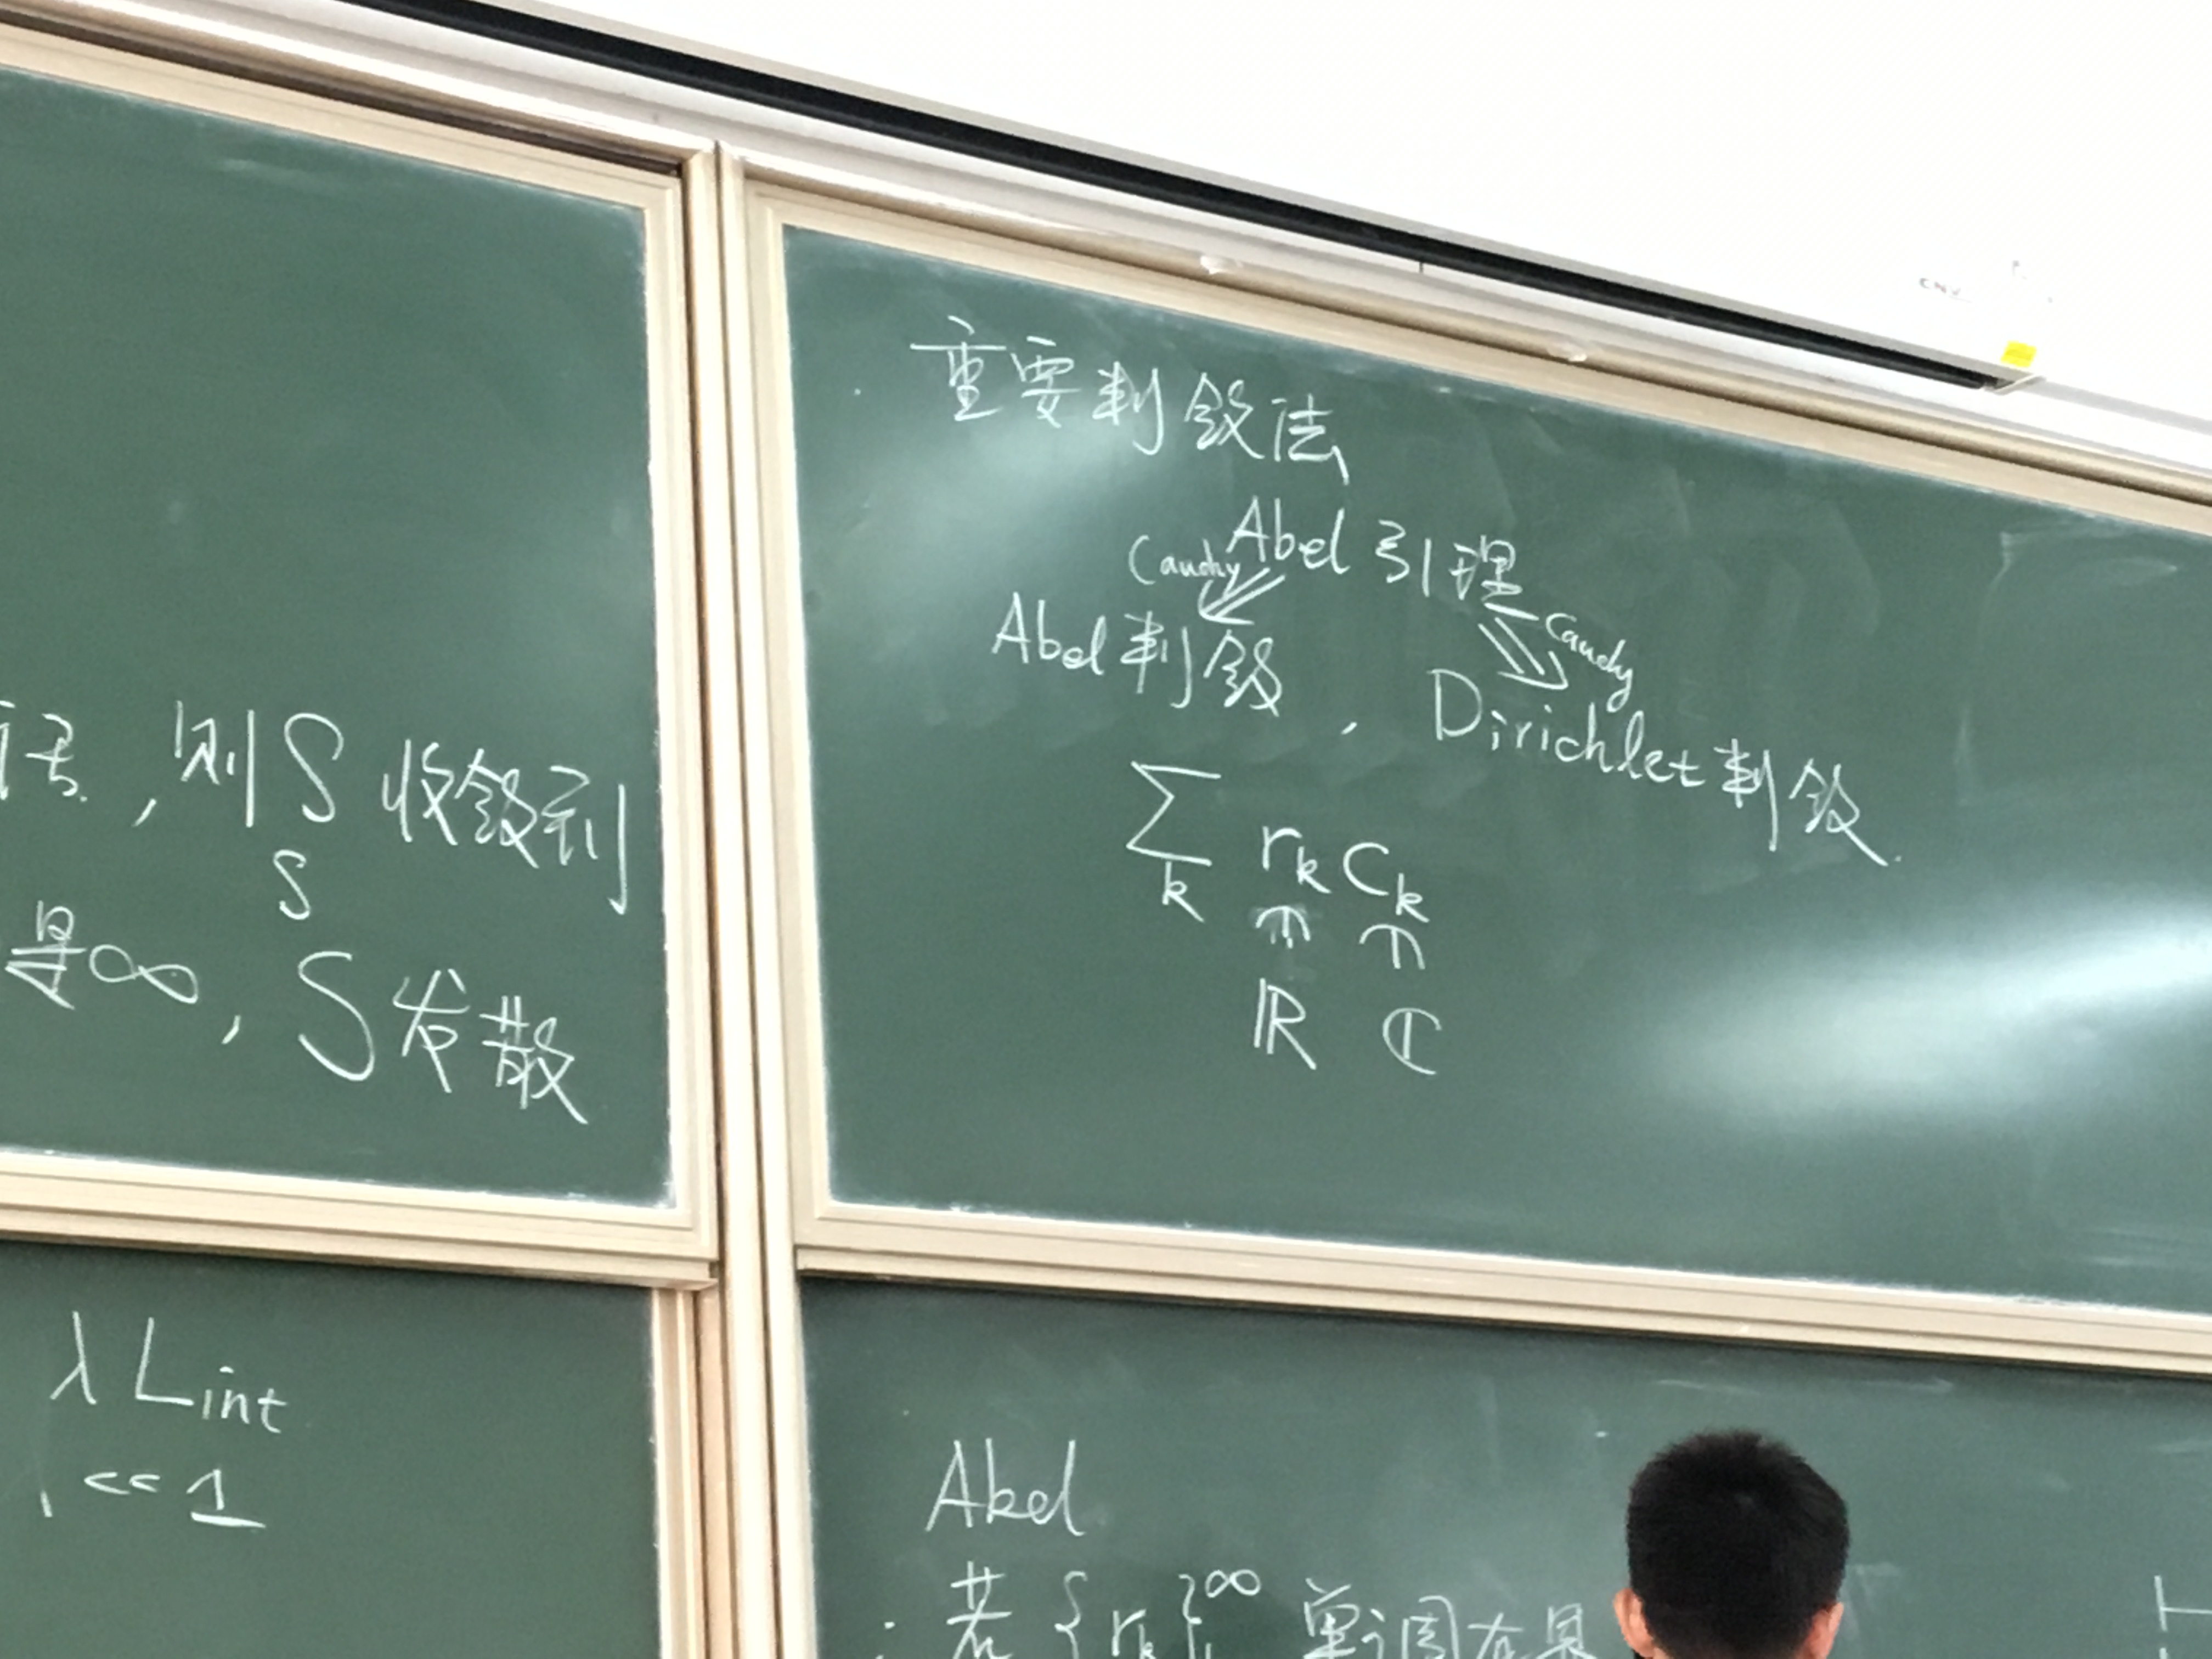 则S收敛到
s
是∞, S发散
λ Lint
<< 1
重要判敛法
Abel 引理
Cauchy
Cauchy
Abel判敛, Dirichlet判敛.
∑ rk Ck
k
ℝ ℂ
Abel
若 {rk}∞1 单调有界